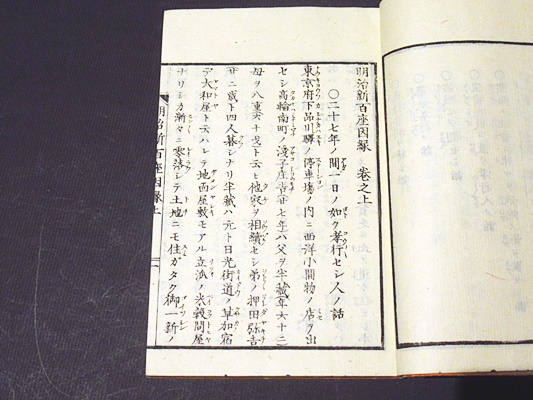 明治新百座因縁 巻之上
○二十七年ノ間一日ノ如ク孝行セシ人ノ話
東京府下品川驛ノ停車場ノ内ニ西洋小間物ノ店ヲ出
セシ高輪南町ノ淺子庄吉廿七年ハ父ヲ半藏年六十二
母ヲ八重六十一才ト云ヒ他家ヲ相續セシ弟ノ押田弥吉
廿二歳ト四人暮シナリ半藏ハ元ト日光街道ノ草加宿
デ大和屋ト云ハレテ地面屋敷モアル立派ノ米穀問屋
ナリシカ漸々ニ零落シテ土地ニモ住ガタク御一新ノ
明治新百座因縁上